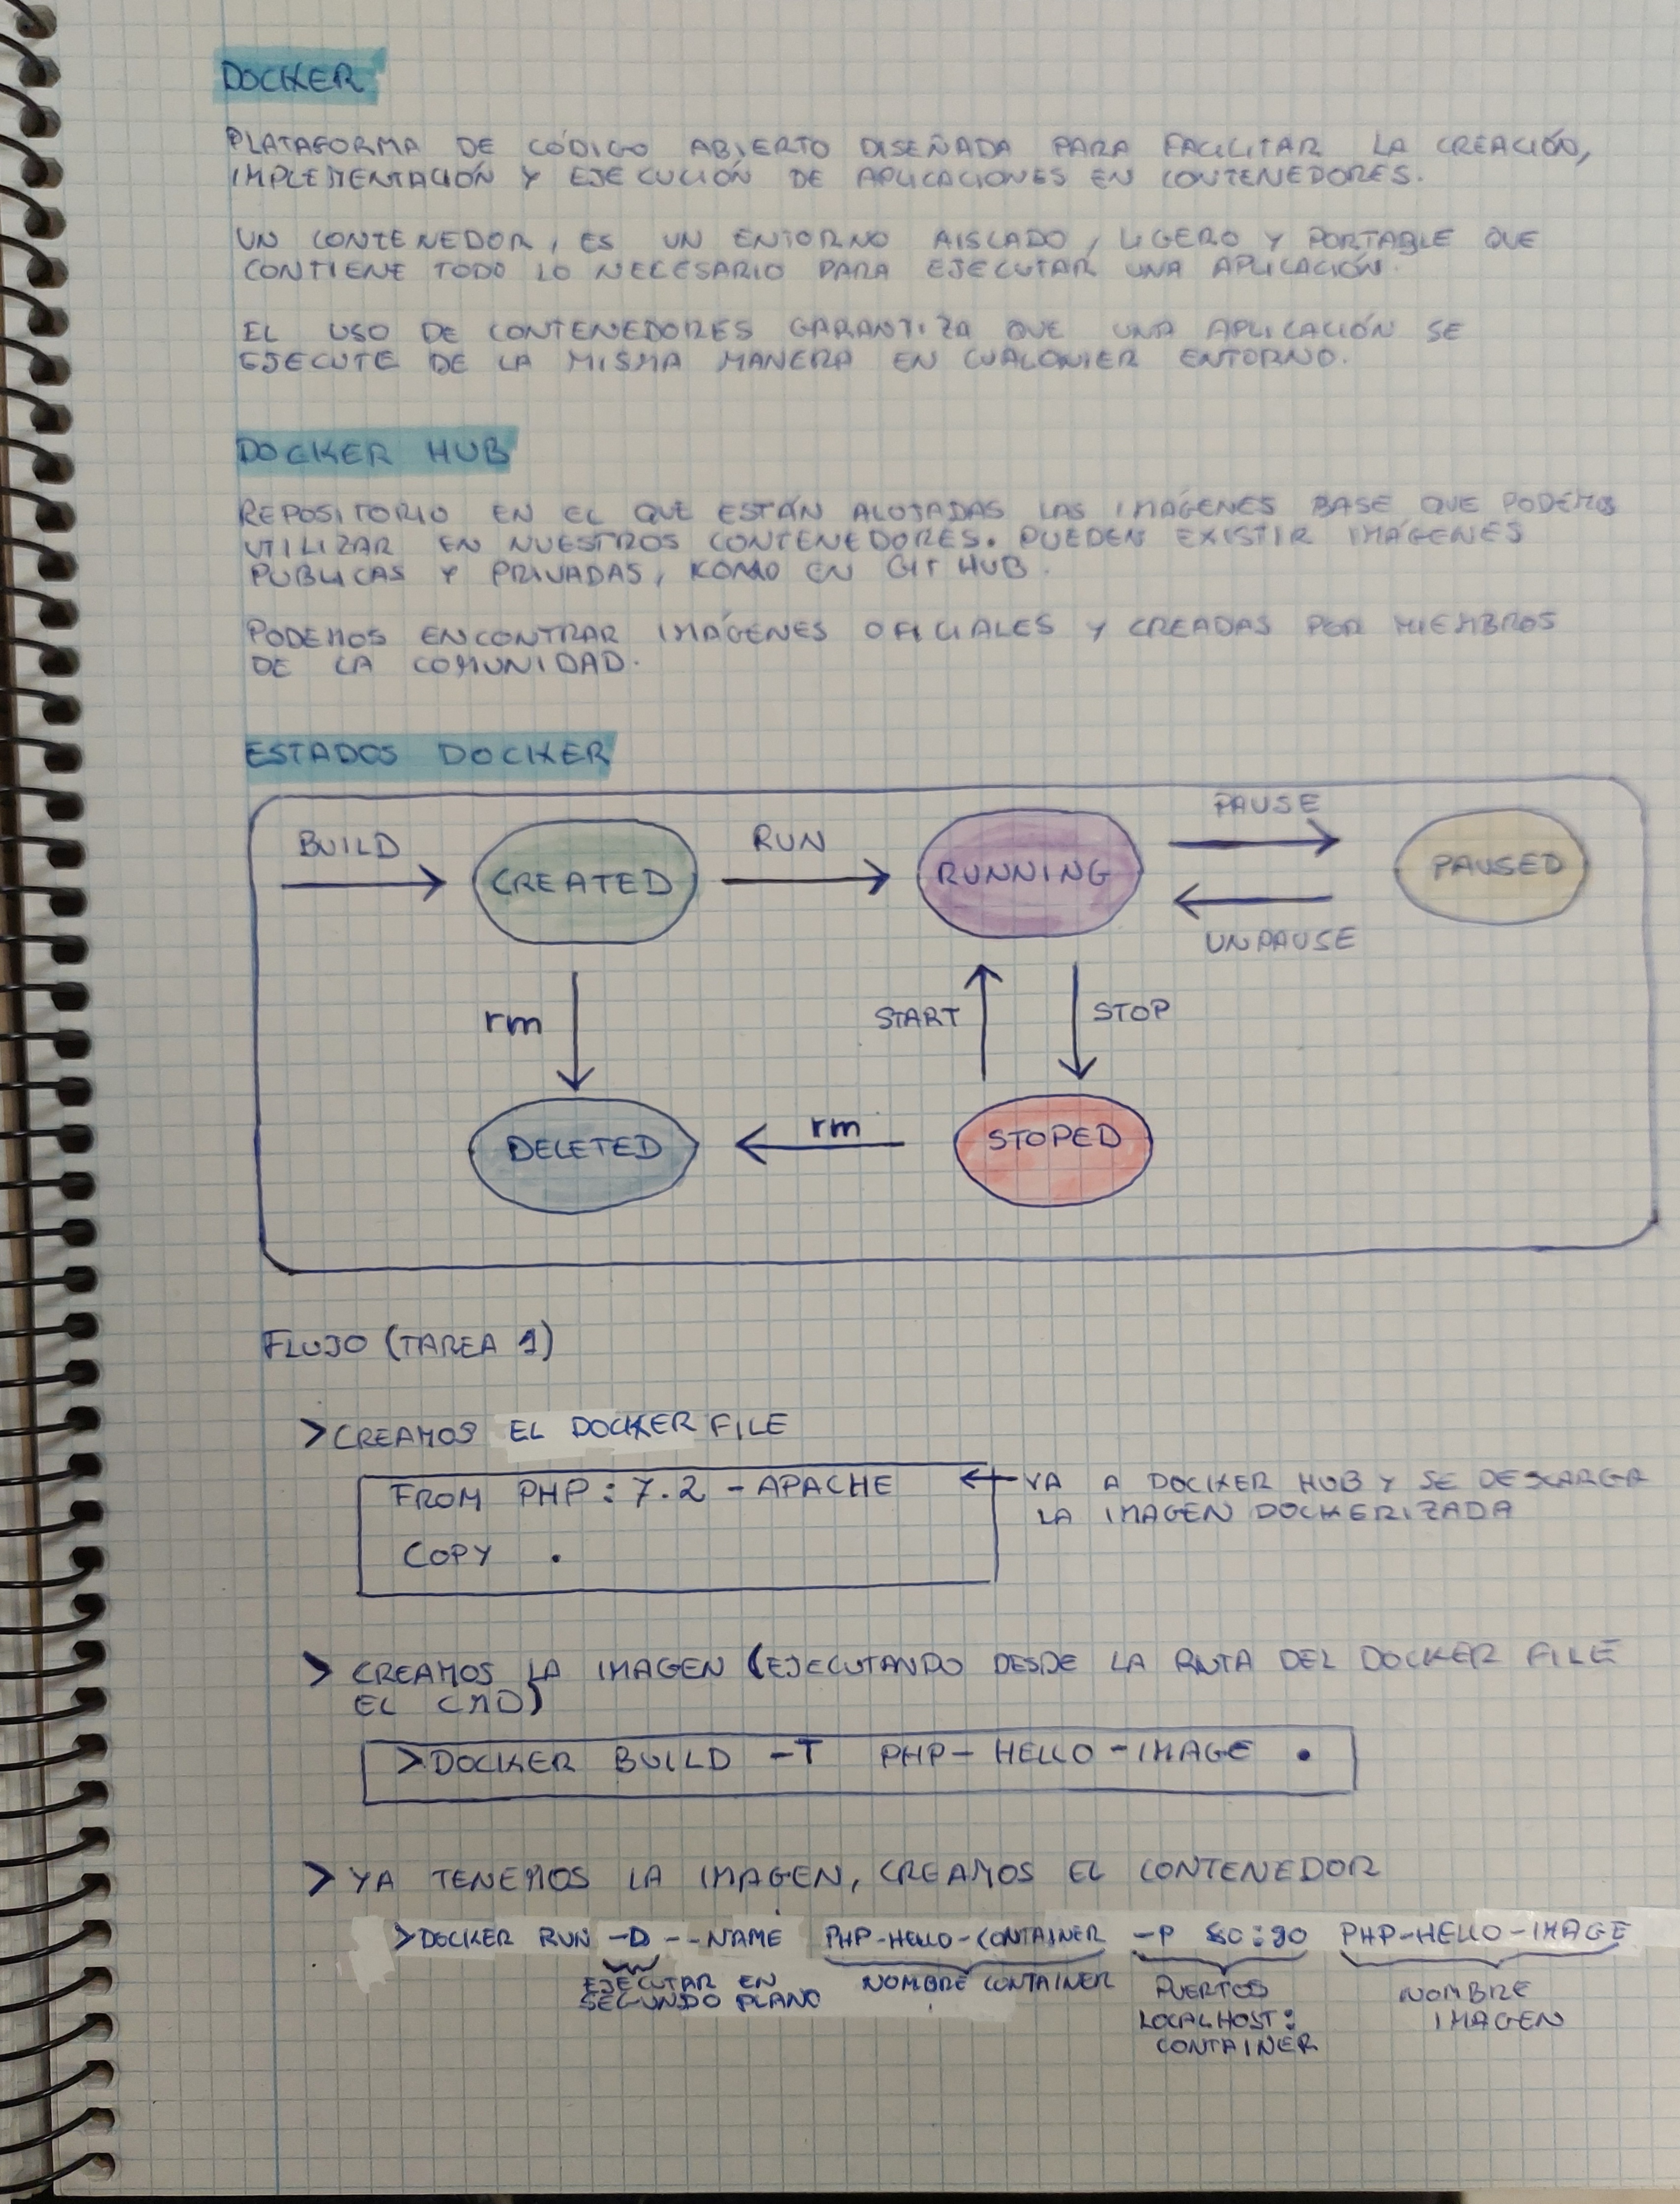 DOCKER
PLATAFORMA DE CÓDIGO ABIERTO DISEÑADA PARA FACILITAR LA CREACIÓN,
IMPLEMENTACIÓN Y EJECUCIÓN DE APLICACIONES EN CONTENEDORES.
UN CONTENEDOR, ES UN ENTORNO AISLADO, LIGERO Y PORTABLE QUE
CONTIENE TODO LO NECESARIO PARA EJECUTAR UNA APLICACIÓN.
EL USO DE CONTENEDORES GARANTIZA QUE UNA APLICACIÓN SE
EJECUTE DE LA MISMA MANERA EN CUALQUIER ENTORNO.
DOCKER HUB
REPOSITORIO EN EL QUE ESTÁN ALOJADAS LAS IMÁGENES BASE QUE PODEMOS
UTILIZAR EN NUESTROS CONTENEDORES. PUEDEN EXISTIR IMÁGENES
PUBLICAS Y PRIVADAS, KOMO EN GIT HUB.
PODEMOS ENCONTRAR IMÁGENES OFICIALES Y CREADAS POR MIEMBROS
DE LA COMUNIDAD.
ESTADOS DOCKER
BUILD
CREATED
RUN
RUNNING
PAUSE
PAUSED
UNPAUSE
rm
START
STOP
DELETED
rm
STOPED
FLUJO (TAREA 1)
>CREAMOS EL DOCKER FILE
FROM PHP:7.2-APACHE
← VA A DOCKER HUB Y SE DESCARGA
LA IMAGEN DOCKERIZADA
COPY .
> CREAMOS LA IMAGEN (EJECUTANDO DESDE LA RUTA DEL DOCKER FILE
EL CMD)
>DOCKER BUILD -T PHP-HELLO-IMAGE .
> YA TENEMOS LA IMAGEN, CREAMOS EL CONTENEDOR
>DOCKER RUN -D --NAME PHP-HELLO-CONTAINER -P 80:90 PHP-HELLO-IMAGE
EJECUTAR EN
SEGUNDO PLANO
NOMBRE CONTAINER
PUERTOS
LOCALHOST:
CONTAINER
NOMBRE
IMAGEN